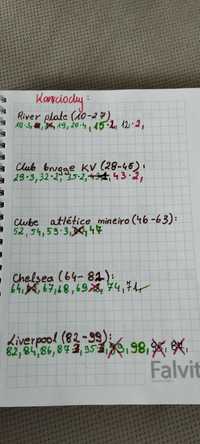 Kawiodły:
River plate (10-27)
10·3, 19, 20·4, 15·2, 12·2,
Club brugge KV (28-45):
29·3, 32·2, 35·2, 43·2,
Clube atlético mineiro (46-63):
52, 54, 59·3, 47
Chelsea (64-81):
64, 67, 68, 69, 74, 71
Liverpool (82-99):
82, 84, 86, 87, 95, 98,
Falvit